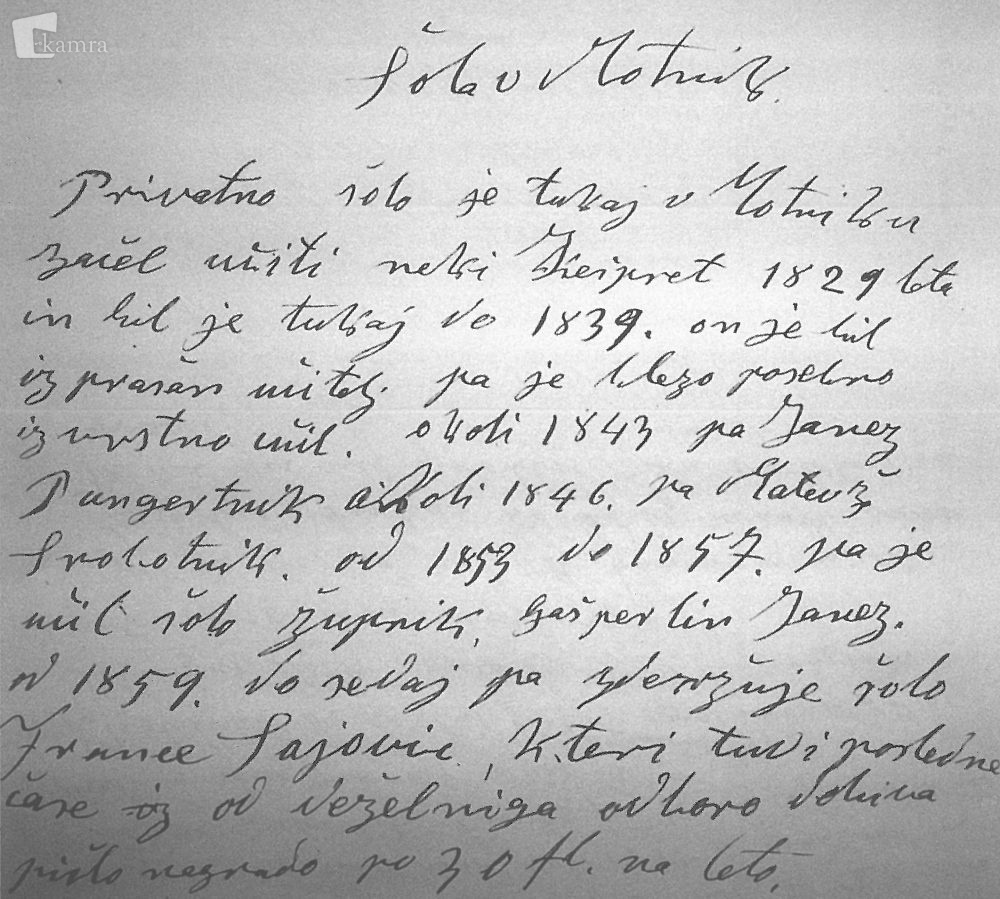 kamra
Šola v Motnik.
Privatno šolo je tukaj v Motniku
začel učiti neki 1829 leta
in bil je tukaj do 1839. on je bil
izprašan učitelj. pa je blezo posebno
izvrstno učil. okoli 1843 pa Janez
Pungertnik okoli 1846. pa Matevž
Srobotnik. od 1853 do 1857. pa je
učil šolo župnik, Gašperlin Janez.
od 1859. do sedaj pa zderžuje šolo
France Sajovic, kteri tudi posledne
čase iz od deželniga odboro dobiva
pičlo nagrado po 30 fl. na leto.